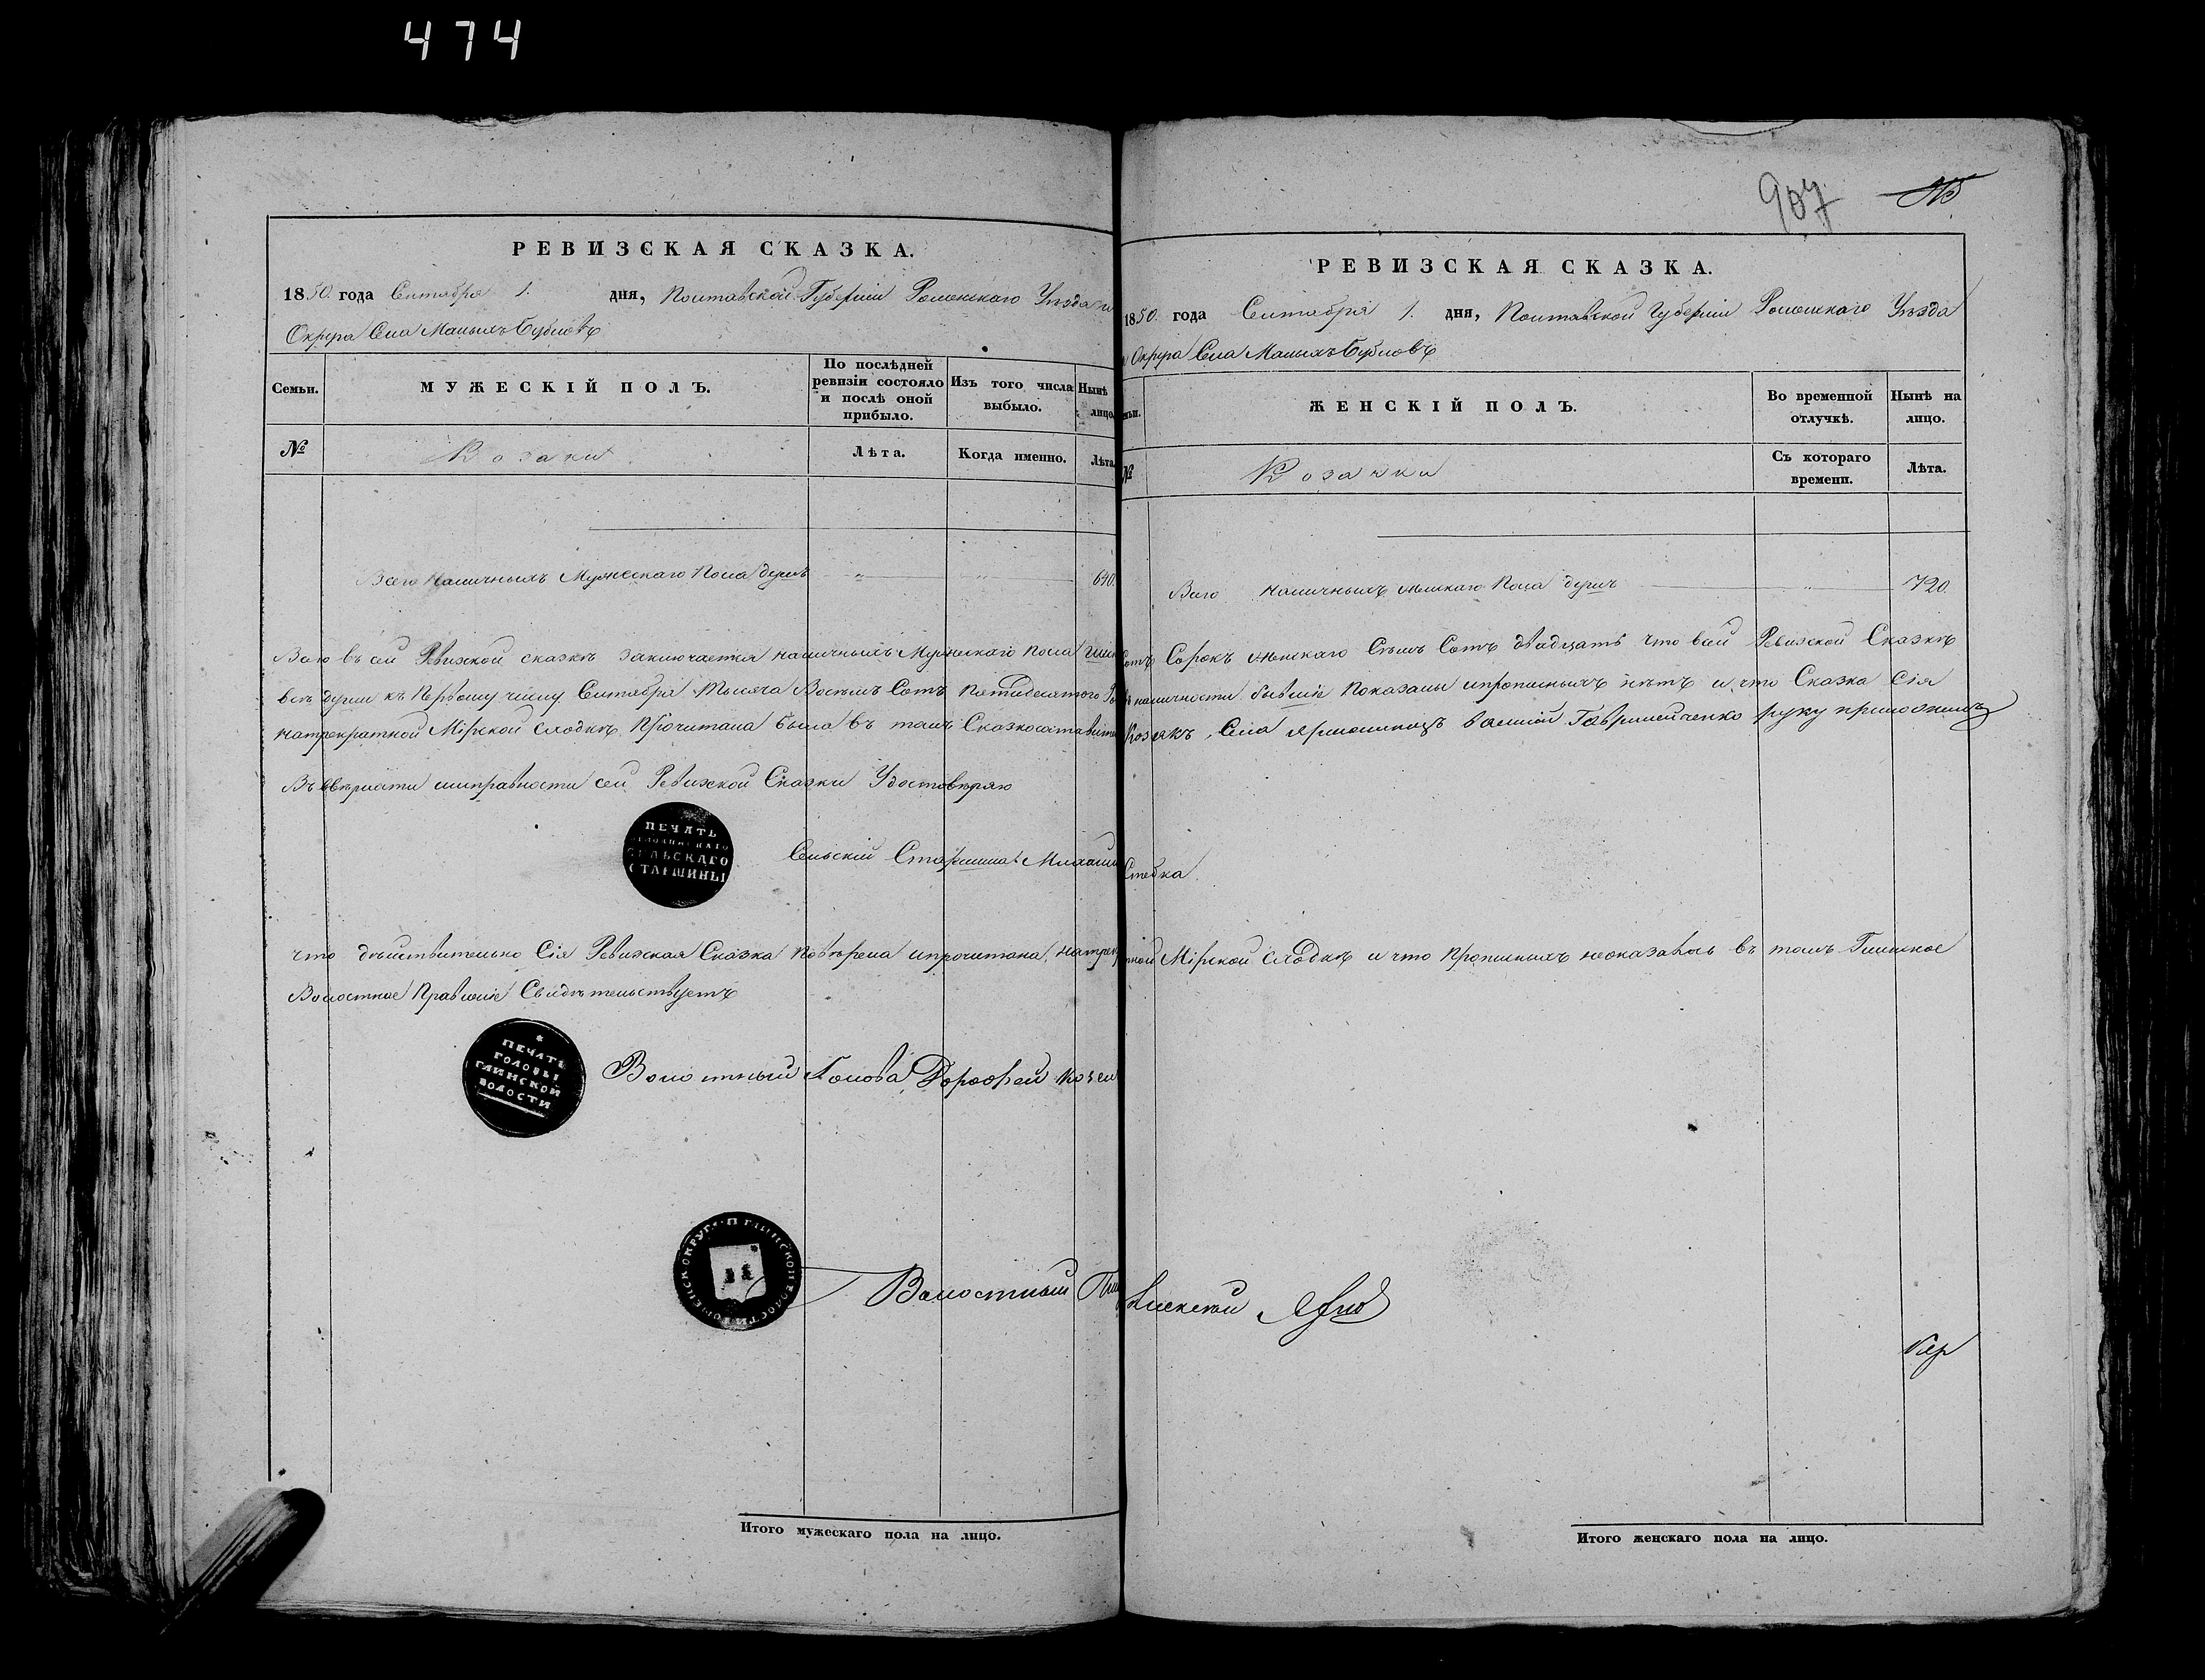 474
907
РЕВИЗСКАЯ СКАЗКА.
1850. года Сентября 1. дня, Полтавской Губерніи Роменскаго Уѣзда и
Округа Села Малыхъ Бубновъ
Семьи.
МУЖЕСКІЙ ПОЛЪ.
По послѣдней ревизіи состояло и послѣ оной прибыло.
Изъ того числа выбыло.
Нынѣ
лицо
№
Козаки
Лѣта.
Когда именно.
Лѣта.
Всего Наличныхъ Мужескаго Пола душъ „ „ 640.
Всего въ сей Ревизской сказкѣ заключается наличныхъ Мужескаго Пола
всѣ души къ Первому числу Сентября Тысяча Восемь Сотъ Пятидесятого
натрекратной Мірской сходкѣ Прочитана была въ томъ
Въ вѣрности исправности сей Ревизской Сказки Удостовѣряю
ПЕЧАТЬ
СЕЛЬСКАГО
СТАРШИНЫ
Сельскій Старшина
что дѣйствительно Сія Ревизская Сказка Повѣрена ипрочитана,
Волостное Правленіе Свидѣтельствуетъ
ПЕЧАТЬ
ГОЛОВЫ
ГЛИНСКОЙ
ВОЛОСТИ
Волостный Голова Дорофей
РОМЕНСК ОКРУГ ГЛИНСКОЙ ВОЛОСТИ
Волостный
Итого мужескаго пола на лицо.
РЕВИЗСКАЯ СКАЗКА.
1850. года Сентября 1. дня, Полтавской Губерніи Роменскаго Уѣзда
и Округа Села Малыхъ Бубновъ
ЖЕНСКІЙ ПОЛЪ.
Во временной отлучкѣ.
Нынѣ на лицо.
№
Козачки
Съ котораго времени.
Лѣта.
Всего Наличныхъ женскаго Пола душъ „ 720.
Сотъ Сорокъ женскаго Семь Сотъ двадцать Что всей Ревизской Сказкѣ
наличности бывшіе Показаны ипрописныхъ нѣтъ и что Сказка Сія
Козакъ, Села руку приложилъ
Стебка
Мірской сходкѣ и что Прописныхъ неоказалось въ томъ Глинское
Итого женскаго пола на лицо.